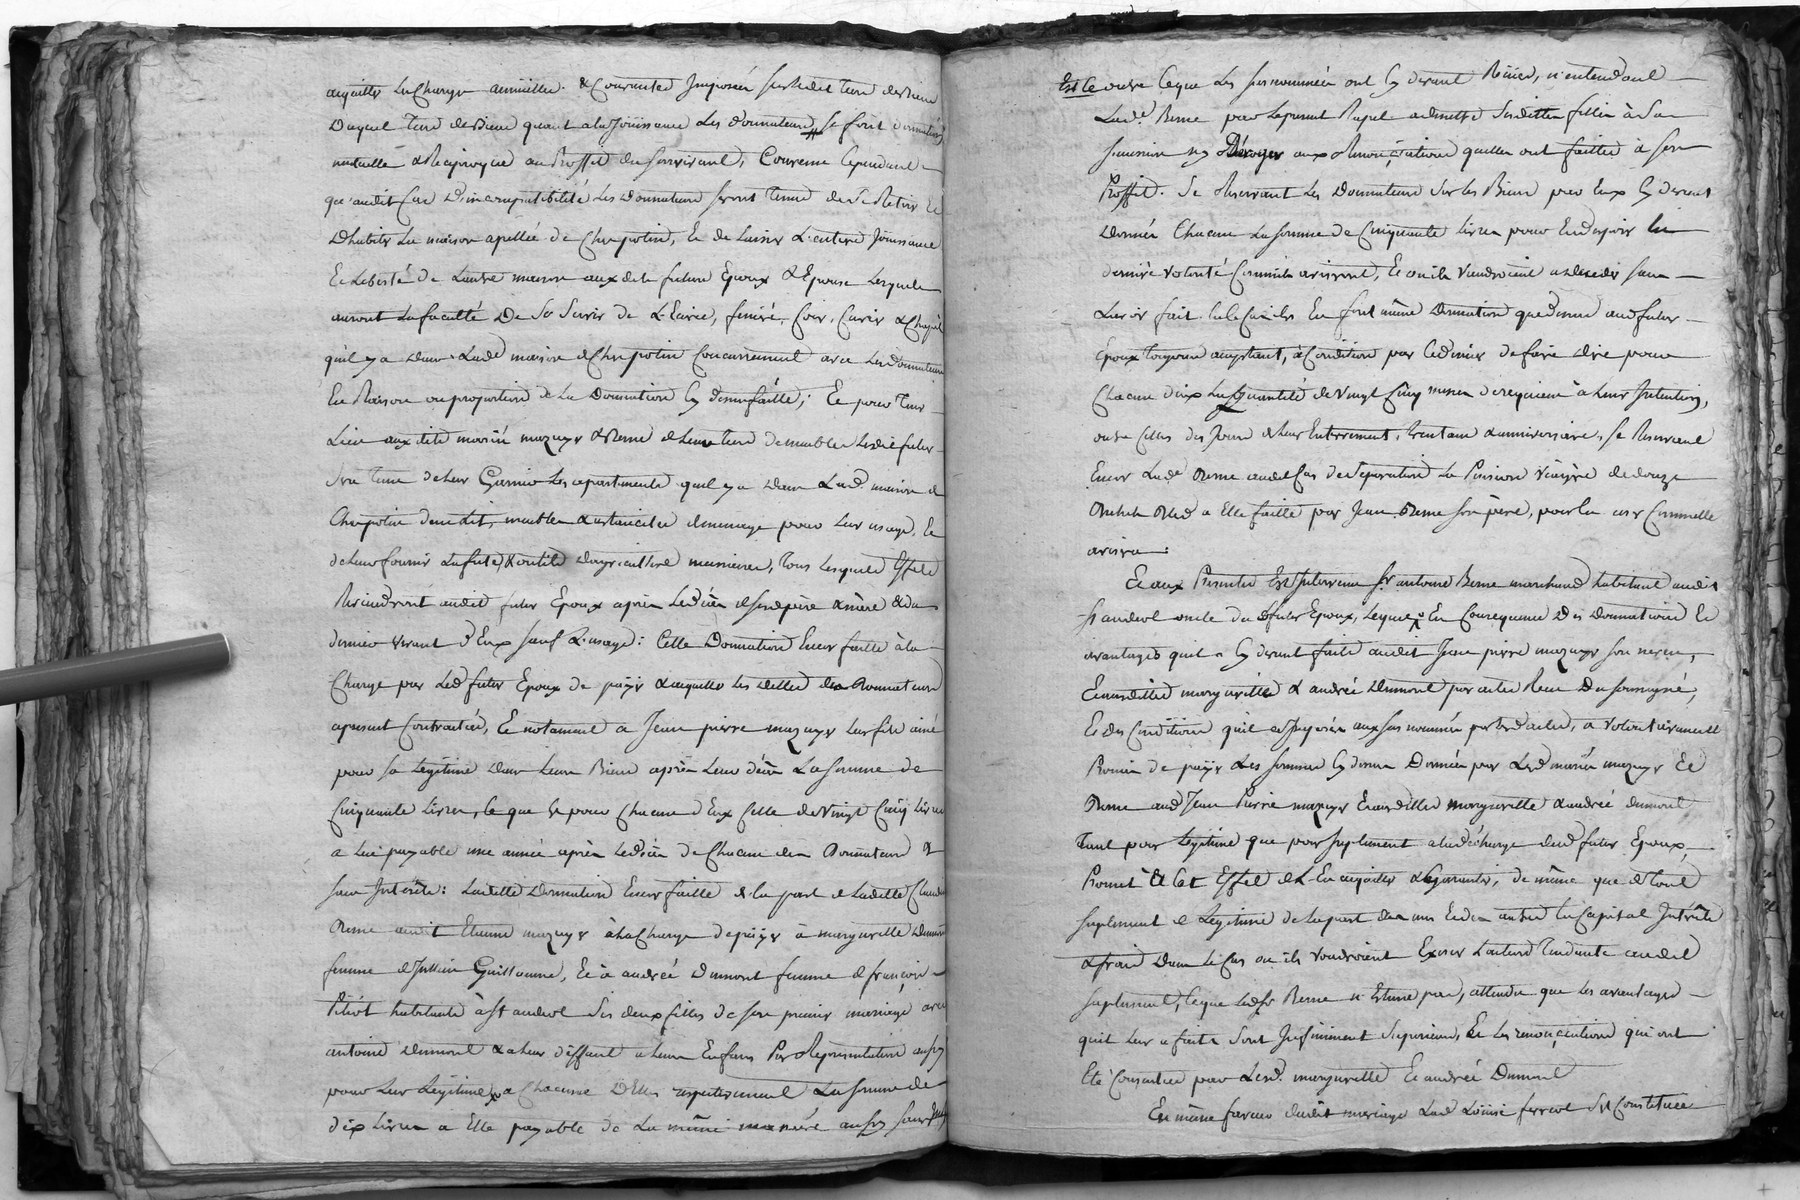 acquitter les Charges annuelles & Courantes Imposées sur ledit tene de Biens
Duquel tene de Biens quant a la Joüissance Les donnateurs se font donnation
mutuelle & Reciproque au Proffit du survivant, Convenu Cependant
qu'audit Cas D'incompatibilité Les Donnateurs seront tenus de se Retirer Et
D'habiter La maison apellée de Chapolin, Et de laisser L'entiere Joüissance
Et Liberté de L'autre maison auxdits futurs Epoux & Epouse Lesquels
auront La faculté De Se Servir de L'Ecurie, feniere, Cour, Cuvier &
qu'il y a Dans Lade maison de Chapolin Concurremment avec Les Donnateurs
En Raison ou proportion de La Donnation Cy dessus faitte; Et pour tenir
Lieu auxdits mariés mazuyer & Berne de Leurs tene de meubles Ledit futur
sera tenu de Leur Garnir Les apartements qu'il y a Dans Lade maison de
Chapolin D'un Lit, meubles & ustanciles de menage pour Leur usage, Et
de Leur fournir & outils D'agriculture necessaires, tous Lesquels Effets
Reviendront audit futur Epoux après Le Déces de ses père & mère & du
dernier vivant D'Eux sauf L'usage: Cette Donnation Encor faitte à la
Charge par Led futur Epoux de païer & acquitter Les dettes des Donnateurs
apresent Contractées, Et notamment a Jean pierre mazuyer Leur fils ainé
pour sa Legitime Dans Leurs Biens après Leur déces La somme de
Cinquante Livres, Ce que Est pour Chacun d'Eux Celle de Vingt Cinq Livres
a Lui payable une année après Le Déces de Chacun des Donnateurs &
sans Intérêts: Laditte Donnation Encor faitte de la part de Laditte Claudine
Berne audit Etienne mazuyer à La Charge de païer à margueritte Dumont
femme de Guillaume, Et à andrée Dumont femme de françois
habitants à St andeol Ses deux filles de son premier mariage avec
antoine Dumont & a Leur deffaut a Leurs Enfans Par Representation aussy
pour Leur Legitime a Chacune D'Elles respectivement La somme de
dix Livres a Elle payable de La même maniere aussy sans
Est Ce outre Ceque Les susnommées ont Cy devant Reçües, n'entendant
Lade Berne par Le present Rapel admettre Sesdittes filles à Sa
sucession ny Déroger aux Renonciations quelles ont faittes à son
Proffit. Se Reservant Les Donnateurs Sur les Biens par Eux Cy devant
Donnés Chacun La somme de Cinquante Livres pour En disposer
derniere volonté Comme ils aviseront, Et ou ils Viendroient a deceder sans
L'avoir fait En font même Donnation que Dessus aud futur
Epoux toujours acceptant, à Condition par Ce Dernier de faire dire pour
Chacun d'Eux La Quantité de Vingt Cinq messes de requiem à Leur Intention,
outre Celles des Jours de Leur Enterrement, trentain & anniversaire, se Reservant
Encor Lade Berne audit Cas de Separation La Pension Viagère de douze
Bichets Bled a Elle faitte par Jean Berne son père, pour En user Comme Elle
avisera:
Et aux Presentes Est Intervenu Sr antoine Berne marchand habitant audit
St andeol oncle du d futur Epoux, Lequel En Consequence Des Donnations Et
avantages qu'il a Cy devant faits audit Jean pierre mazuyer son neveu,
Et auxdittes margueritte & andrée Dumont par actes Recu Du soussigné,
Et des Conditions qu'il a Imposées aux susnommés par Lesd actes, a volontairement
Promis de païer Les sommes Cy dessus Données par Lesd mariés mazuyer Et
Berne aud Jean Pierre mazuyer Et auxdittes margueritte & andrée Dumont
tant pour Legitime que pour suplement a la décharge dud futur Epoux,
Promet à Cet Effet de L'En acquitter & Garantir, de même que de tout
suplement de Legitime de la part des uns Et des autres En Capital Intérêts
& frais Dans Le Cas ou ils Voudroient Exercer L'action tendante audit
suplement, Ceque Led Sr Berne n'Estime pas, attendu que Les avantages
qu'il Leur a faits sont Infiniment Superieurs, Et Les renonciations qui ont
Eté Consenties par Lesd. margueritte Et andrée Dumont
En même faveur dudit mariage Lade Loüise ferreol s'est Constituée